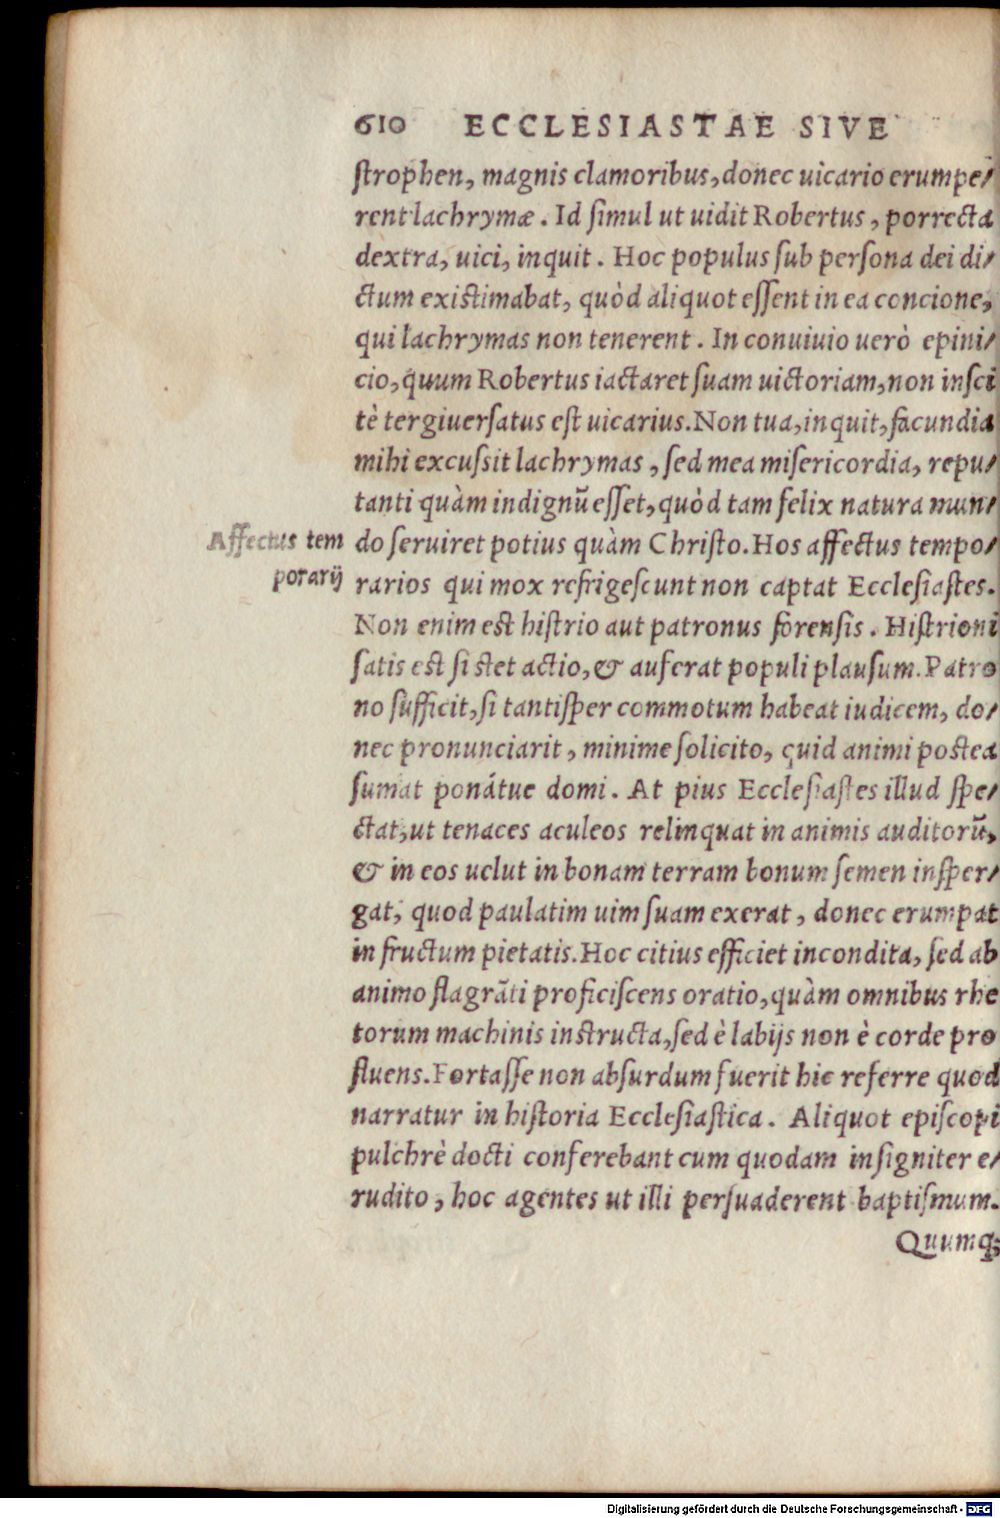 610 ECCLESIASTAE SIVE
ſtrophen, magnis clamoribus, donec uicario erumpe/
rent lachrymæ. Id ſimul ut uidit Robertus, porrecta
dextra, uici, inquit. Hoc populus ſub perſona dei di/
ctum existimabat, quòd aliquot eſſent in ea concione,
qui lachrymas non tenerent. In conuiuio uerò epini/
cio, quum Robertus iactaret ſuam uictoriam, non inſci
tè tergiuerſatus eſt uicarius. Non tua, inquit, facundia
mihi excuſsit lachrymas, ſed mea miſericordia, repu/
tanti quàm indignū eſſet, quòd tam felix natura mun/
Affectus tem
porarij
do ſeruiret potius quàm Chriſto. Hos affectus tempo/
rarios qui mox refrigeſcunt non captat Eccleſiaſtes.
Non enim est hiſtrio aut patronus forenſis. Hiſtrioni
ſatis est ſi stet actio, & auferat populi plauſum. Patro
no ſufficit, ſi tantiſper commotum habeat iudicem, do/
nec pronunciarit, minime ſolicito, quid animi postea
ſumat ponátue domi. At pius Eccleſiaſtes illud ſpe/
ctat, ut tenaces aculeos relinquat in animis auditorū,
& in eos uelut in bonam terram bonum ſemen inſper/
gat, quod paulatim uim ſuam exerat, donec erumpat
in fructum pietatis. Hoc citius efficiet incondita, ſed ab
animo flagrāti proficiſcens oratio, quàm omnibus rhe
torum machinis instructa, ſed è labijs non è corde pro
fluens. Fortaſſe non abſurdum fuerit hic referre quod
narratur in hiſtoria Eccleſiaſtica. Aliquot epiſcopi
pulchrè docti conferebant cum quodam inſigniter e/
rudito, hoc agentes ut illi perſuaderent baptiſmum.
Quumq;
Digitalisierung gefördert durch die Deutsche Forschungsgemeinschaft - DFG